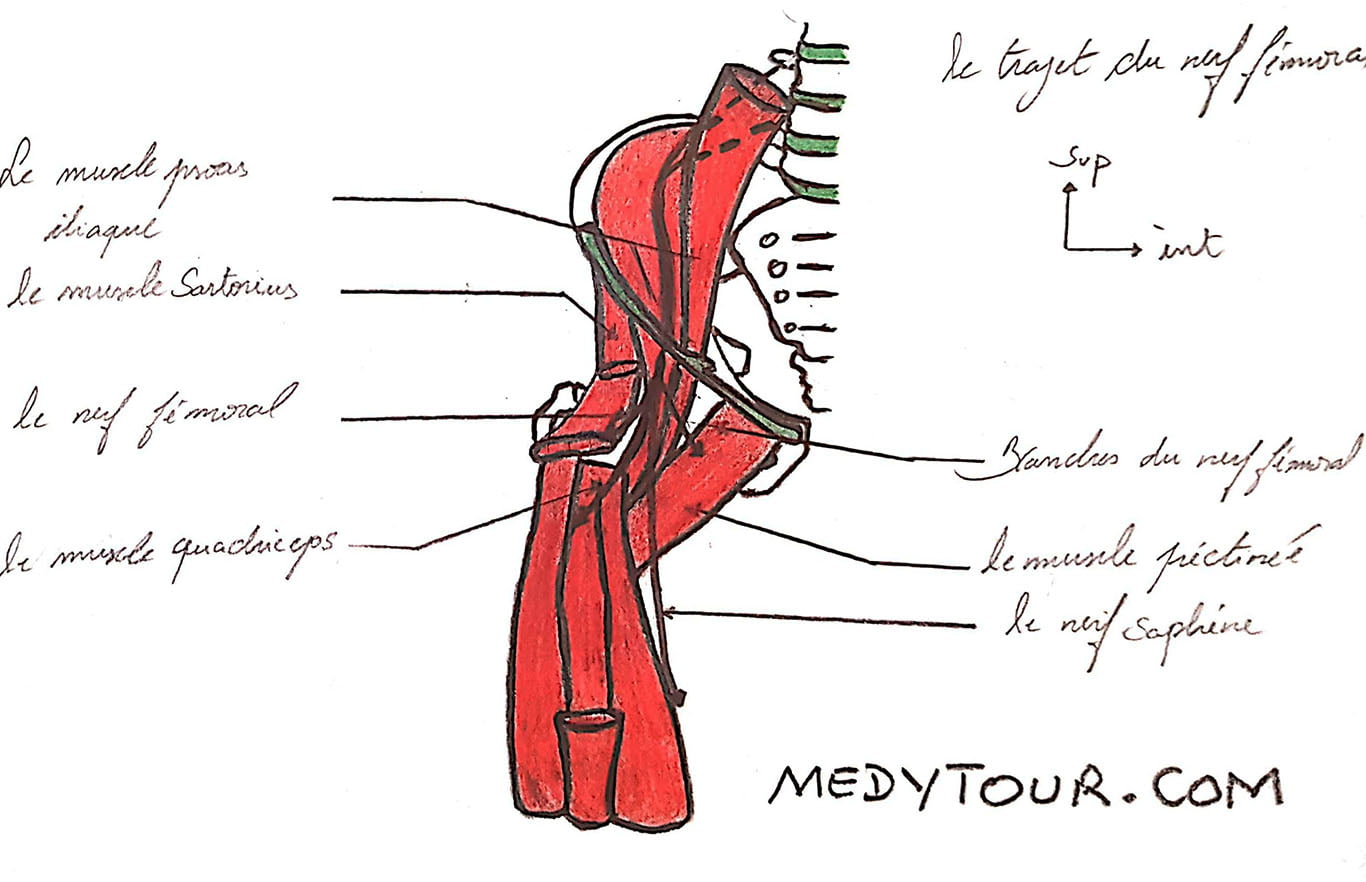 le trajet du nerf fémoral
Sup
int
Le muscle psoas
iliaque
le muscle Sartorius
le nerf fémoral
le muscle quadriceps
Branches du nerf fémoral
le muscle péctinéé
le nerf saphène
MEDYTOUR.COM